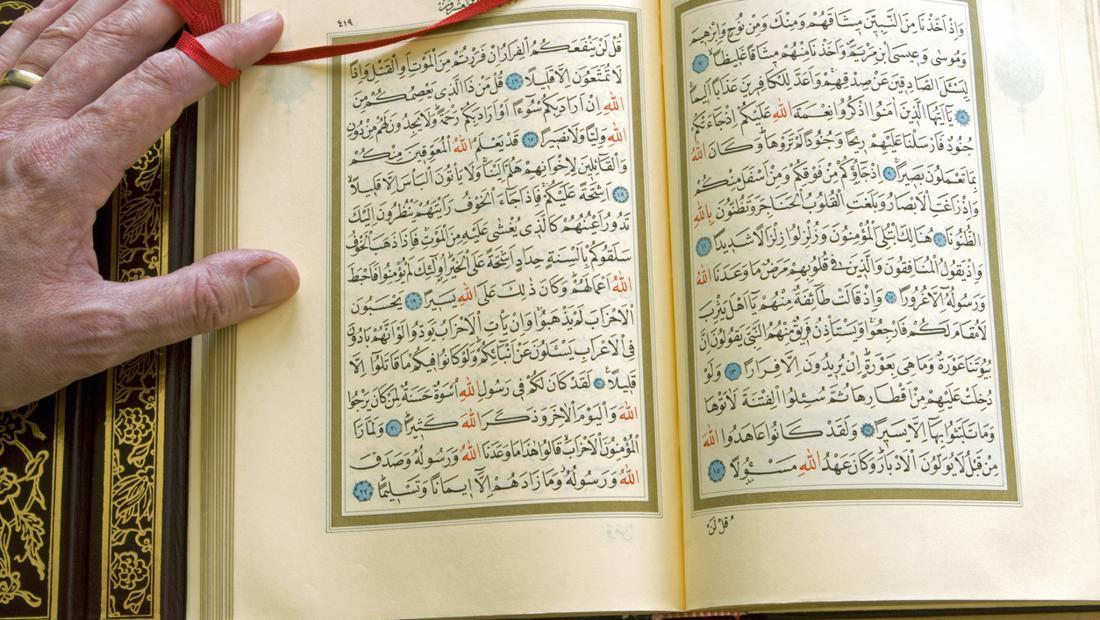 وَاِذْ اَخَذْنَا مِنَ النَّبِيّٖنَ مٖيثَاقَهُمْ وَمِنْكَ وَمِنْ نُوحٍ وَاِبْرٰهٖيمَ
وَمُوسٰى وَعٖيسَى ابْنِ مَرْيَمَ وَاَخَذْنَا مِنْهُمْ مٖيثَاقًا غَلٖيظًا ٧
لِيَسْئَلَ الصَّادِقٖينَ عَنْ صِدْقِهِمْ وَاَعَدَّ لِلْكَافِرٖينَ عَذَابًا اَلٖيمًا
٨ يَٓا اَيُّهَا الَّذٖينَ اٰمَنُوا اذْكُرُوا نِعْمَةَ اللّٰهِ عَلَيْكُمْ اِذْ جَٓاءَتْكُمْ
جُنُودٌ فَاَرْسَلْنَا عَلَيْهِمْ رٖيحًا وَجُنُودًا لَمْ تَرَوْهَا وَكَانَ اللّٰهُ
بِمَا تَعْمَلُونَ بَصٖيرًا ٩ اِذْ جَٓاؤُكُمْ مِنْ فَوْقِكُمْ وَمِنْ اَسْفَلَ مِنْكُمْ
وَاِذْ زَاغَتِ الْاَبْصَارُ وَبَلَغَتِ الْقُلُوبُ الْحَنَاجِرَ وَتَظُنُّونَ بِاللّٰهِ
الظُّنُونَا ١٠ هُنَالِكَ ابْتُلِيَ الْمُؤْمِنُونَ وَزُلْزِلُوا زِلْزَالًا شَدٖيدًا ١١
وَاِذْ يَقُولُ الْمُنَافِقُونَ وَالَّذٖينَ فٖي قُلُوبِهِمْ مَرَضٌ مَا وَعَدَنَا اللّٰهُ
وَرَسُولُهُٓ اِلَّا غُرُورًا ١٢ وَاِذْ قَالَتْ طَٓائِفَةٌ مِنْهُمْ يَٓا اَهْلَ يَثْرِبَ
لَا مُقَامَ لَكُمْ فَارْجِعُوا وَيَسْتَأْذِنُ فَرٖيقٌ مِنْهُمُ النَّبِيَّ يَقُولُونَ اِنَّ
بُيُوتَنَا عَوْرَةٌ وَمَا هِيَ بِعَوْرَةٍ اِنْ يُرٖيدُونَ اِلَّا فِرَارًا ١٣ وَلَوْ
دُخِلَتْ عَلَيْهِمْ مِنْ اَقْطَارِهَا ثُمَّ سُئِلُوا الْفِتْنَةَ لَاٰتَوْهَا
وَمَا تَلَبَّثُوا بِهَٓا اِلَّا يَسٖيرًا ١٤ وَلَقَدْ كَانُوا عَاهَدُوا اللّٰهَ
مِنْ قَبْلُ لَا يُوَلُّونَ الْاَدْبَارَ وَكَانَ عَهْدُ اللّٰهِ مَسْؤُلًا ١٥
قُلْ لَنْ
٤١٩
قُلْ لَنْ يَنْفَعَكُمُ الْفِرَارُ اِنْ فَرَرْتُمْ مِنَ الْمَوْتِ اَوِ الْقَتْلِ وَاِذًا
لَا تُمَتَّعُونَ اِلَّا قَلٖيلًا ١٦ قُلْ مَنْ ذَا الَّذٖي يَعْصِمُكُمْ مِنَ
اللّٰهِ اِنْ اَرَادَ بِكُمْ سُٓوءًا اَوْ اَرَادَ بِكُمْ رَحْمَةً وَلَا يَجِدُونَ لَهُمْ مِنْ دُونِ
اللّٰهِ وَلِيًّا وَلَا نَصٖيرًا ١٧ قَدْ يَعْلَمُ اللّٰهُ الْمُعَوِّقٖينَ مِنْكُمْ
وَالْقَٓائِلٖينَ لِاِخْوَانِهِمْ هَلُمَّ اِلَيْنَا وَلَا يَأْتُونَ الْبَأْسَ اِلَّا قَلٖيلًا
١٨ اَشِحَّةً عَلَيْكُمْ فَاِذَا جَٓاءَ الْخَوْفُ رَاَيْتَهُمْ يَنْظُرُونَ اِلَيْكَ
تَدُورُ اَعْيُنُهُمْ كَالَّذٖي يُغْشٰى عَلَيْهِ مِنَ الْمَوْتِ فَاِذَا ذَهَبَ الْخَوْفُ
سَلَقُوكُمْ بِاَلْسِنَةٍ حِدَادٍ اَشِحَّةً عَلَى الْخَيْرِ اُولٰٓئِكَ لَمْ يُؤْمِنُوا فَاَحْبَطَ
اللّٰهُ اَعْمَالَهُمْ وَكَانَ ذٰلِكَ عَلَى اللّٰهِ يَسٖيرًا ١٩ يَحْسَبُونَ
الْاَحْزَابَ لَمْ يَذْهَبُوا وَاِنْ يَأْتِ الْاَحْزَابُ يَوَدُّوا لَوْ اَنَّهُمْ بَادُونَ
فِي الْاَعْرَابِ يَسْئَلُونَ عَنْ اَنْبَٓائِكُمْ وَلَوْ كَانُوا فٖيكُمْ مَا قَاتَلُٓوا اِلَّا
قَلٖيلًا ٢٠ لَقَدْ كَانَ لَكُمْ فٖي رَسُولِ اللّٰهِ اُسْوَةٌ حَسَنَةٌ لِمَنْ كَانَ يَرْجُوا
اللّٰهَ وَالْيَوْمَ الْاٰخِرَ وَذَكَرَ اللّٰهَ كَثٖيرًا ٢١ وَلَمَّا رَاَ
الْمُؤْمِنُونَ الْاَحْزَابَ قَالُوا هٰذَا مَا وَعَدَنَا اللّٰهُ وَرَسُولُهُ وَصَدَقَ
اللّٰهُ وَرَسُولُهُ وَمَا زَادَهُمْ اِلَّٓا اٖيمَانًا وَتَسْلٖيمًا ٢٢